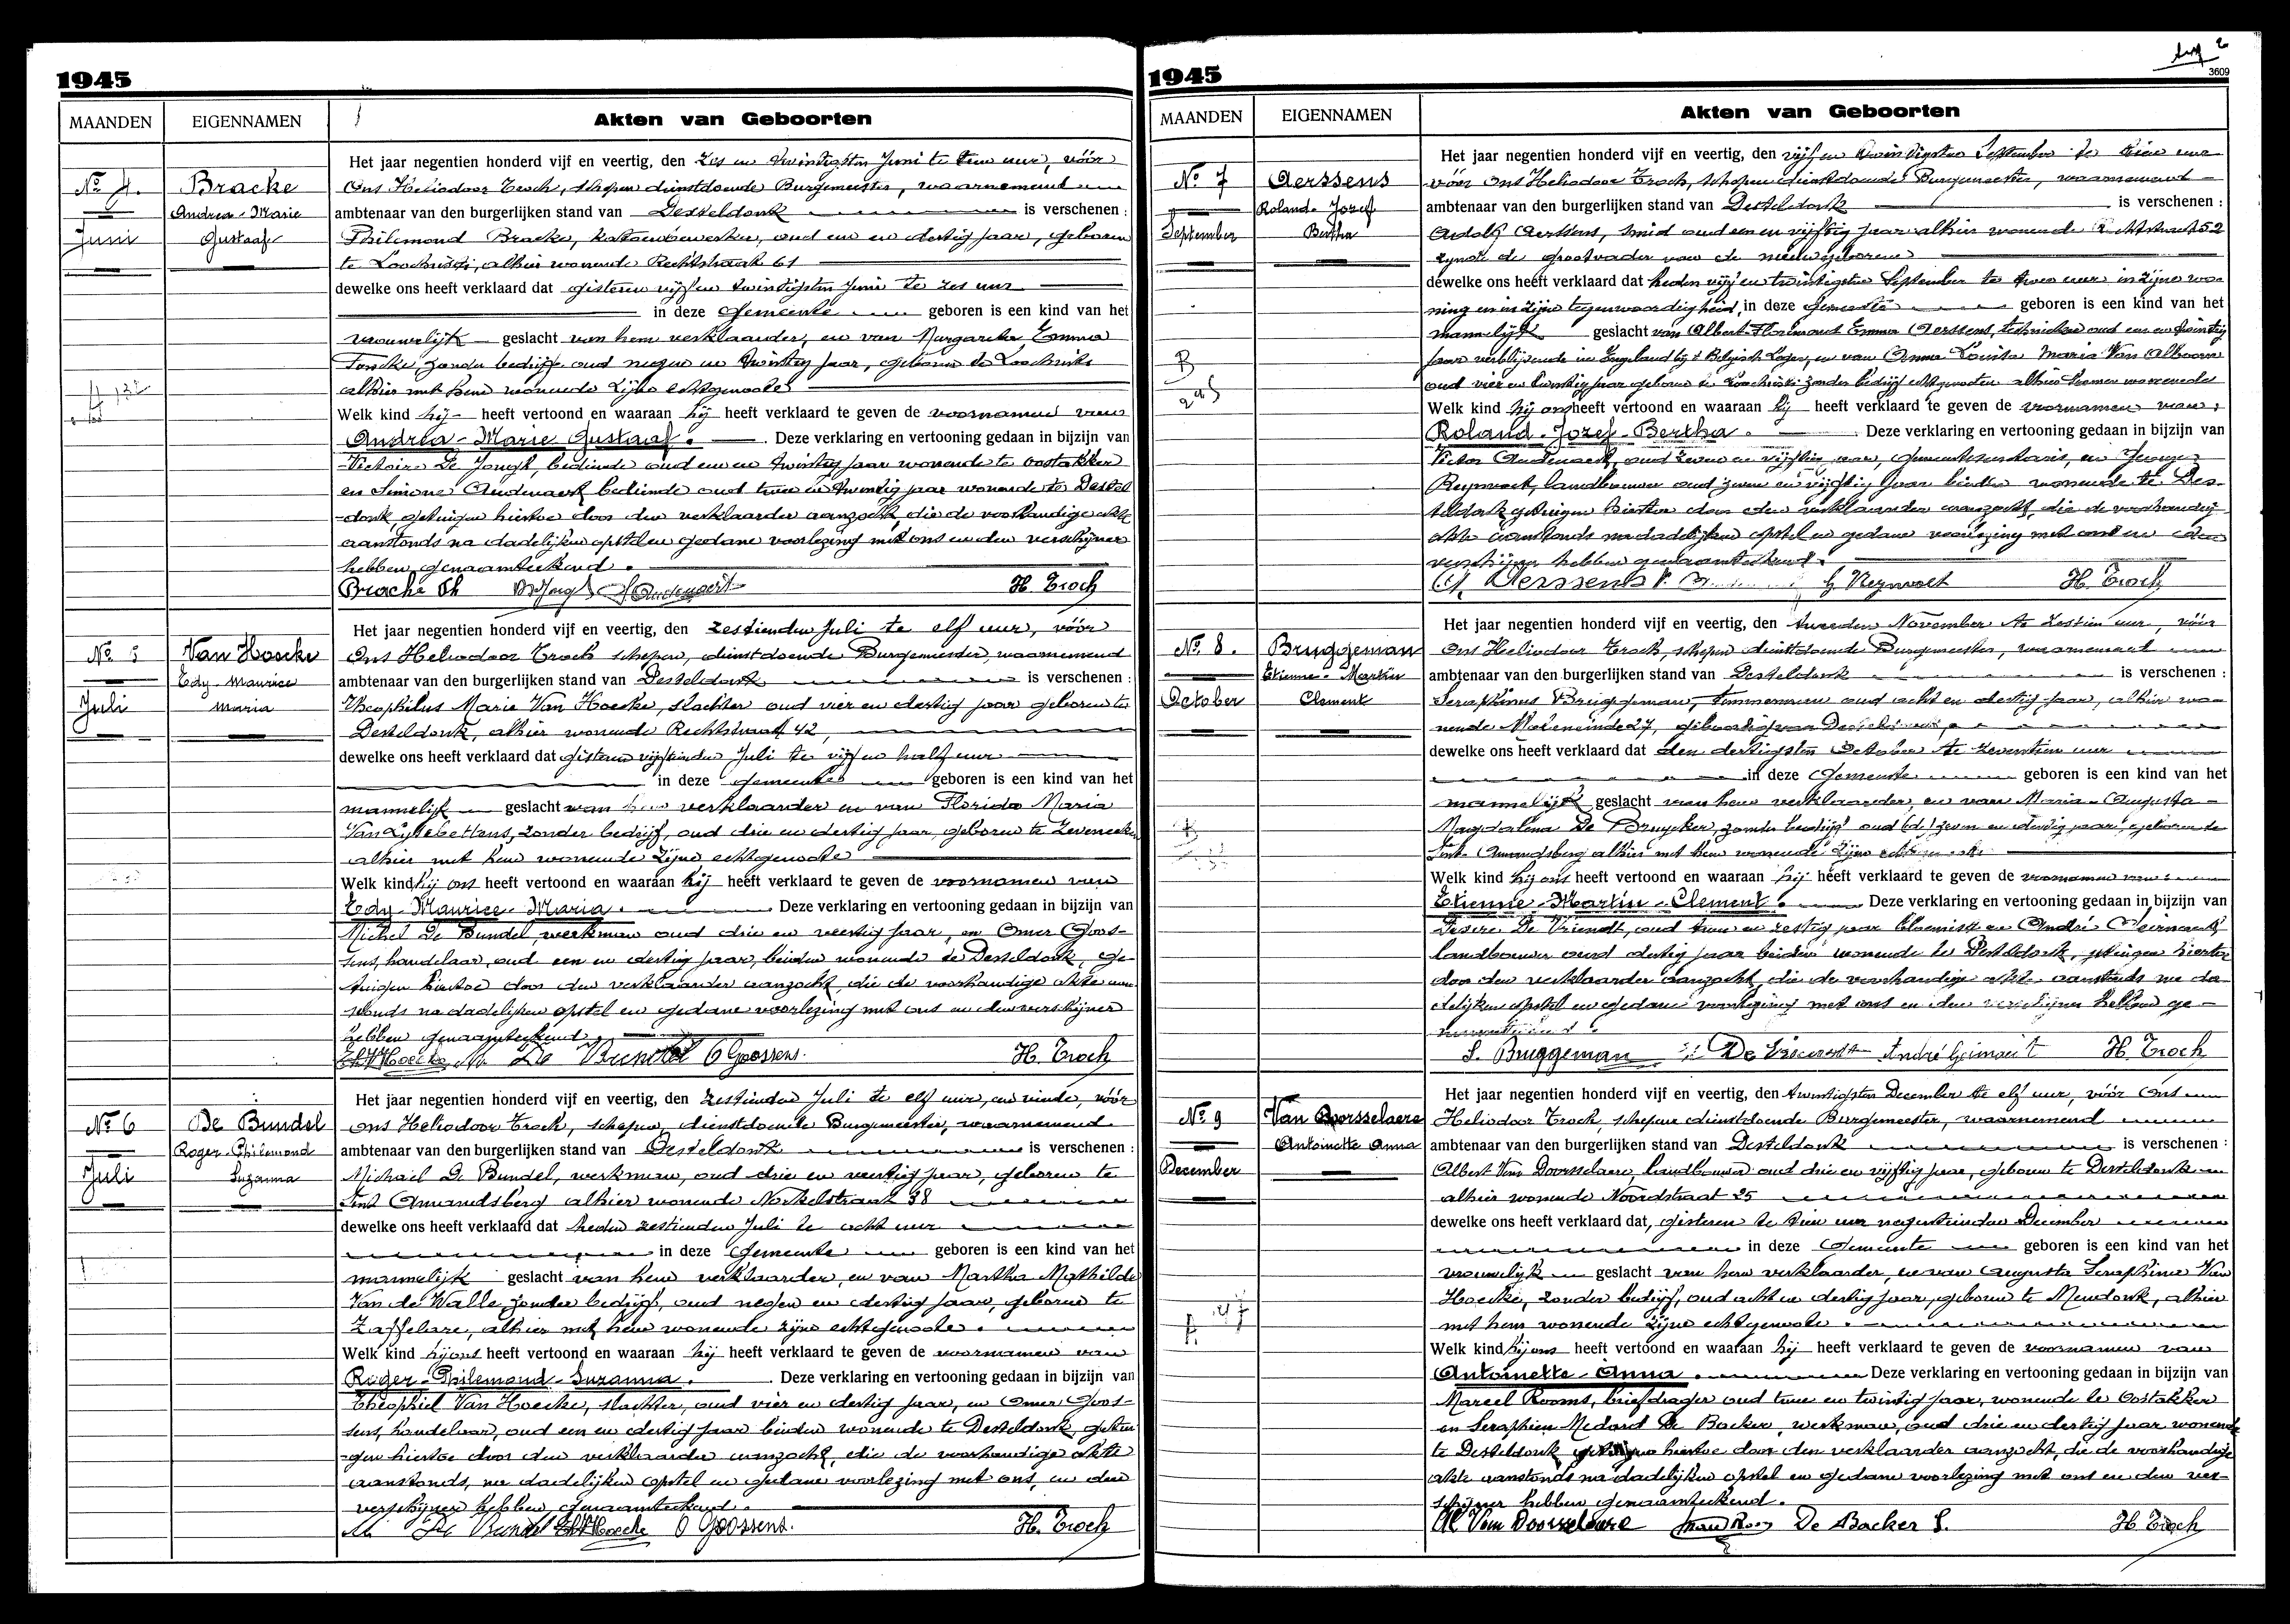 1945
MAANDEN
EIGENNAMEN
Akten van Geboorten
No 4.
Juni
Bracke
Andrea-Marie
Gustaaf
Het jaar negentien honderd vijf en veertig, den zes en twintigsten Juni te tien uur, vóór
Ons Heliodoor Troch, schepen dienstdoende Burgemeester, waarnemend
ambtenaar van den burgerlijken stand van Desteldonk is verschenen :
Philemond Bracke, katoenbewerker, oud een en dertig jaar, geboren
te Loochristi, alhier wonende Rechtstraat 61
dewelke ons heeft verklaard dat gisteren vijf en twintigsten Juni te zes uur
in deze gemeente geboren is een kind van het
vrouwelijk geslacht van hem verklaarder, en van Margareta Emma
zonder bedrijf oud negen en twintig jaar, geboren te Loochristi
alhier met hem wonende zijne echtgenoote
Welk kind hij heeft vertoond en waaraan hij heeft verklaard te geven de voornamen van
Andrea-Marie Gustaaf. Deze verklaring en vertooning gedaan in bijzijn van
Victoire De Jongh, bediende oud een en twintig jaar wonende te Oostakker
en Simone Oudenaert bediende oud twee en twintig jaar wonende te Destel
-donk, getuigen hiertoe door den verklaarder aanzocht, die de voorhandige akte
aanstonds na dadelijken opstel en gedane voorlezing met ons en den verschijner
hebben genaamteekend.
Bracke Ph DJongh S Oudenaert H. Troch
No 5
Juli
Van Hoecke
Edy-Maurice
Maria
Het jaar negentien honderd vijf en veertig, den zestienden Juli te elf uur, vóór
Ons Heliodoor Troch schepen, dienstdoende Burgemeester, waarnemend
ambtenaar van den burgerlijken stand van Desteldonk is verschenen :
Theophilus Marie Van Hoecke, slachter oud vier en dertig jaar geboren te
Desteldonk, alhier wonende Rechtstraat 42,
dewelke ons heeft verklaard dat gisteren vijftienden Juli te vijf en half uur
in deze gemeente geboren is een kind van het
mannelijk geslacht van hem verklaarder en van Florida Maria
Van Lytebettens, zonder bedrijf, oud drie en dertig jaar, geboren te Zeveneeken
alhier met hem wonende zijne echtgenoote
Welk kind hij ons heeft vertoond en waaraan hij heeft verklaard te geven de voornamen van
Edy-Maurice-Maria. Deze verklaring en vertooning gedaan in bijzijn van
Michel De Bundel, werkman oud drie en veertig jaar, en Omer Goos-
sens, handelaar, oud een en dertig jaar, beiden wonende te Desteldonk, ge-
tuigen hiertoe door den verklaarder aanzocht, die de voorhandige akte aan-
stonds na dadelijken opstel en gedane voorlezing met ons en den verschijner
hebben genaamteekend.
Th VHoecke M. De Bundel O Goossens. H. Troch
No 6
Juli
De Bundel
Roger-Philemond
Suzanna
Het jaar negentien honderd vijf en veertig, den zestienden Juli te elf uur, en vóór
Ons Heliodoor Troch, schepen, dienstdoende Burgemeester, waarnemend
ambtenaar van den burgerlijken stand van Desteldonk is verschenen :
Michael De Bundel, werkman, oud drie en veertig jaar, geboren te
Sint Amandsberg alhier wonende 38
dewelke ons heeft verklaard dat heden zestienden Juli te acht uur
in deze gemeente geboren is een kind van het
mannelijk geslacht van hem verklaarder, en van Martha Mathilde
Van de Walle zonder bedrijf, oud negen en dertig jaar, geboren te
Zaffelare, alhier met hem wonende zijne echtgenoote.
Welk kind hij ons heeft vertoond en waaraan hij heeft verklaard te geven de voornamen van
Roger-Philemond-Suzanna. Deze verklaring en vertooning gedaan in bijzijn van
Theophiel Van Hoecke, slachter, oud vier en dertig jaar, en Omer Goos-
sens, handelaar, oud een en dertig jaar beiden wonende te Desteldonk, getui-
-gen hiertoe door den verklaarder aanzocht, die de voorhandige akte
aanstonds, na dadelijken opstel en gedane voorlezing met ons, en den
verschijner hebben genaamteekend.
M De Bundel Th VHoecke O Goossens. H. Troch
1945
3609
MAANDEN
EIGENNAMEN
Akten van Geboorten
No 7
September
Aerssens
Roland-Jozef
Bertha
Het jaar negentien honderd vijf en veertig, den vijf en twintigsten September te tien uur
vóór Ons Heliodoor Troch, schepen dienstdoende Burgemeester, waarnemend
ambtenaar van den burgerlijken stand van Desteldonk is verschenen :
Adolf Aerssens, smid oud een en vijftig jaar alhier wonende Rechtstraat 52
zijnde de grootvader van de nieuwgeborene
dewelke ons heeft verklaard dat heden vijf en twintigsten September te twee uur in zijne wo-
ning en in zijne tegenwoordigheid, in deze gemeente geboren is een kind van het
mannelijk geslacht van Albert-Florimond Emma Aerssens, technieker oud een en twintig
jaar verblijvende in Engeland bij 't Belgisch Leger, en van Anna Louisa Maria Van Alboom
oud vier en twintig jaar geboren te Loochristi zonder bedrijf echtgenooten alhier samen wonende
Welk kind hij ons heeft vertoond en waaraan hij heeft verklaard te geven de voornamen van:
Roland-Jozef-Bertha. Deze verklaring en vertooning gedaan in bijzijn van
Victor Oudenaert, oud zeven en vijftig jaar, gemeentesecretaris, en
Reynvoet, landbouwer oud zeven en vijftig jaar beiden wonende te Des-
teldonk getuigen hiertoe door den verklaarder aanzocht, die de voorhandig
akte aanstonds na dadelijken opstel en gedane voorlezing met ons en den
verschijner hebben genaamteekend.
A. Aerssens V. Reynvoet H. Troch
No 8.
October
Bruggeman
Etienne-Martin
Clement
Het jaar negentien honderd vijf en veertig, den tweeden November te zestien uur, vóór
Ons Heliodoor Troch, schepen dienstdoende Burgemeester, waarnemend
ambtenaar van den burgerlijken stand van Desteldonk is verschenen :
Seraphinus Bruggeman, timmerman oud acht en dertig jaar, alhier wo-
nende Moleneinde 27, geboortig van Desteldonk,
dewelke ons heeft verklaard dat den dertigsten October te zeventien uur
in deze gemeente geboren is een kind van het
mannelijk geslacht van hem verklaarder, en van Maria-Augusta-
Magdalena De Bruycker, zonder bedrijf oud zeven en dertig jaar, geboren te
Sint-Amandsberg alhier met hem wonende zijne echtgenoote
Welk kind hij ons heeft vertoond en waaraan hij heeft verklaard te geven de voornamen van:
Etienne-Martin-Clement. Deze verklaring en vertooning gedaan in bijzijn van
Desire De Vriendt, oud twee en zestig jaar bloemist en André Geirnaert,
landbouwer oud dertig jaar beiden wonende te Desteldonk, getuigen hiertoe
door den verklaarder aanzocht, die de voorhandige akte aanstonds na da
delijken opstel en gedane voorlezing met ons en den verschijner hebben ge-
naamteekend.
S. Bruggeman De Vriendt André Geirnaert H. Troch
No 9
December
Van Doorsselaere
Antoinette Anna
Het jaar negentien honderd vijf en veertig, den twintigsten December te elf uur, vóór Ons
Heliodoor Troch, schepen dienstdoende Burgemeester, waarnemend
ambtenaar van den burgerlijken stand van Desteldonk is verschenen :
Albert Van Doorselaere, landbouwer oud drie en vijftig jaar, geboren te Desteldonk en
alhier wonende Noordstraat 25
dewelke ons heeft verklaard dat, gisteren te tien uur negentienden December
in deze gemeente geboren is een kind van het
vrouwelijk geslacht van hem verklaarder, en van Augusta Seraphina Van
Hoecke, zonder bedrijf, oud acht en dertig jaar, geboren te Mendonk, alhier
met hem wonende zijne echtgenoote.
Welk kind hij ons heeft vertoond en waaraan hij heeft verklaard te geven de voornamen van
Antoinette-Anna. Deze verklaring en vertooning gedaan in bijzijn van
Marcel Rooms, briefdrager oud twee en twintig jaar, wonende te Oostakker
en Seraphien Medard De Backer, werkman, oud drie en dertig jaar wonende
te Desteldonk getuigen hiertoe door den verklaarder aanzocht, die de voorhandige
akte aanstonds na dadelijken opstel en gedane voorlezing met ons en den ver-
schijner hebben genaamteekend.
Al Van Doorselaere De Backer S. H. Troch